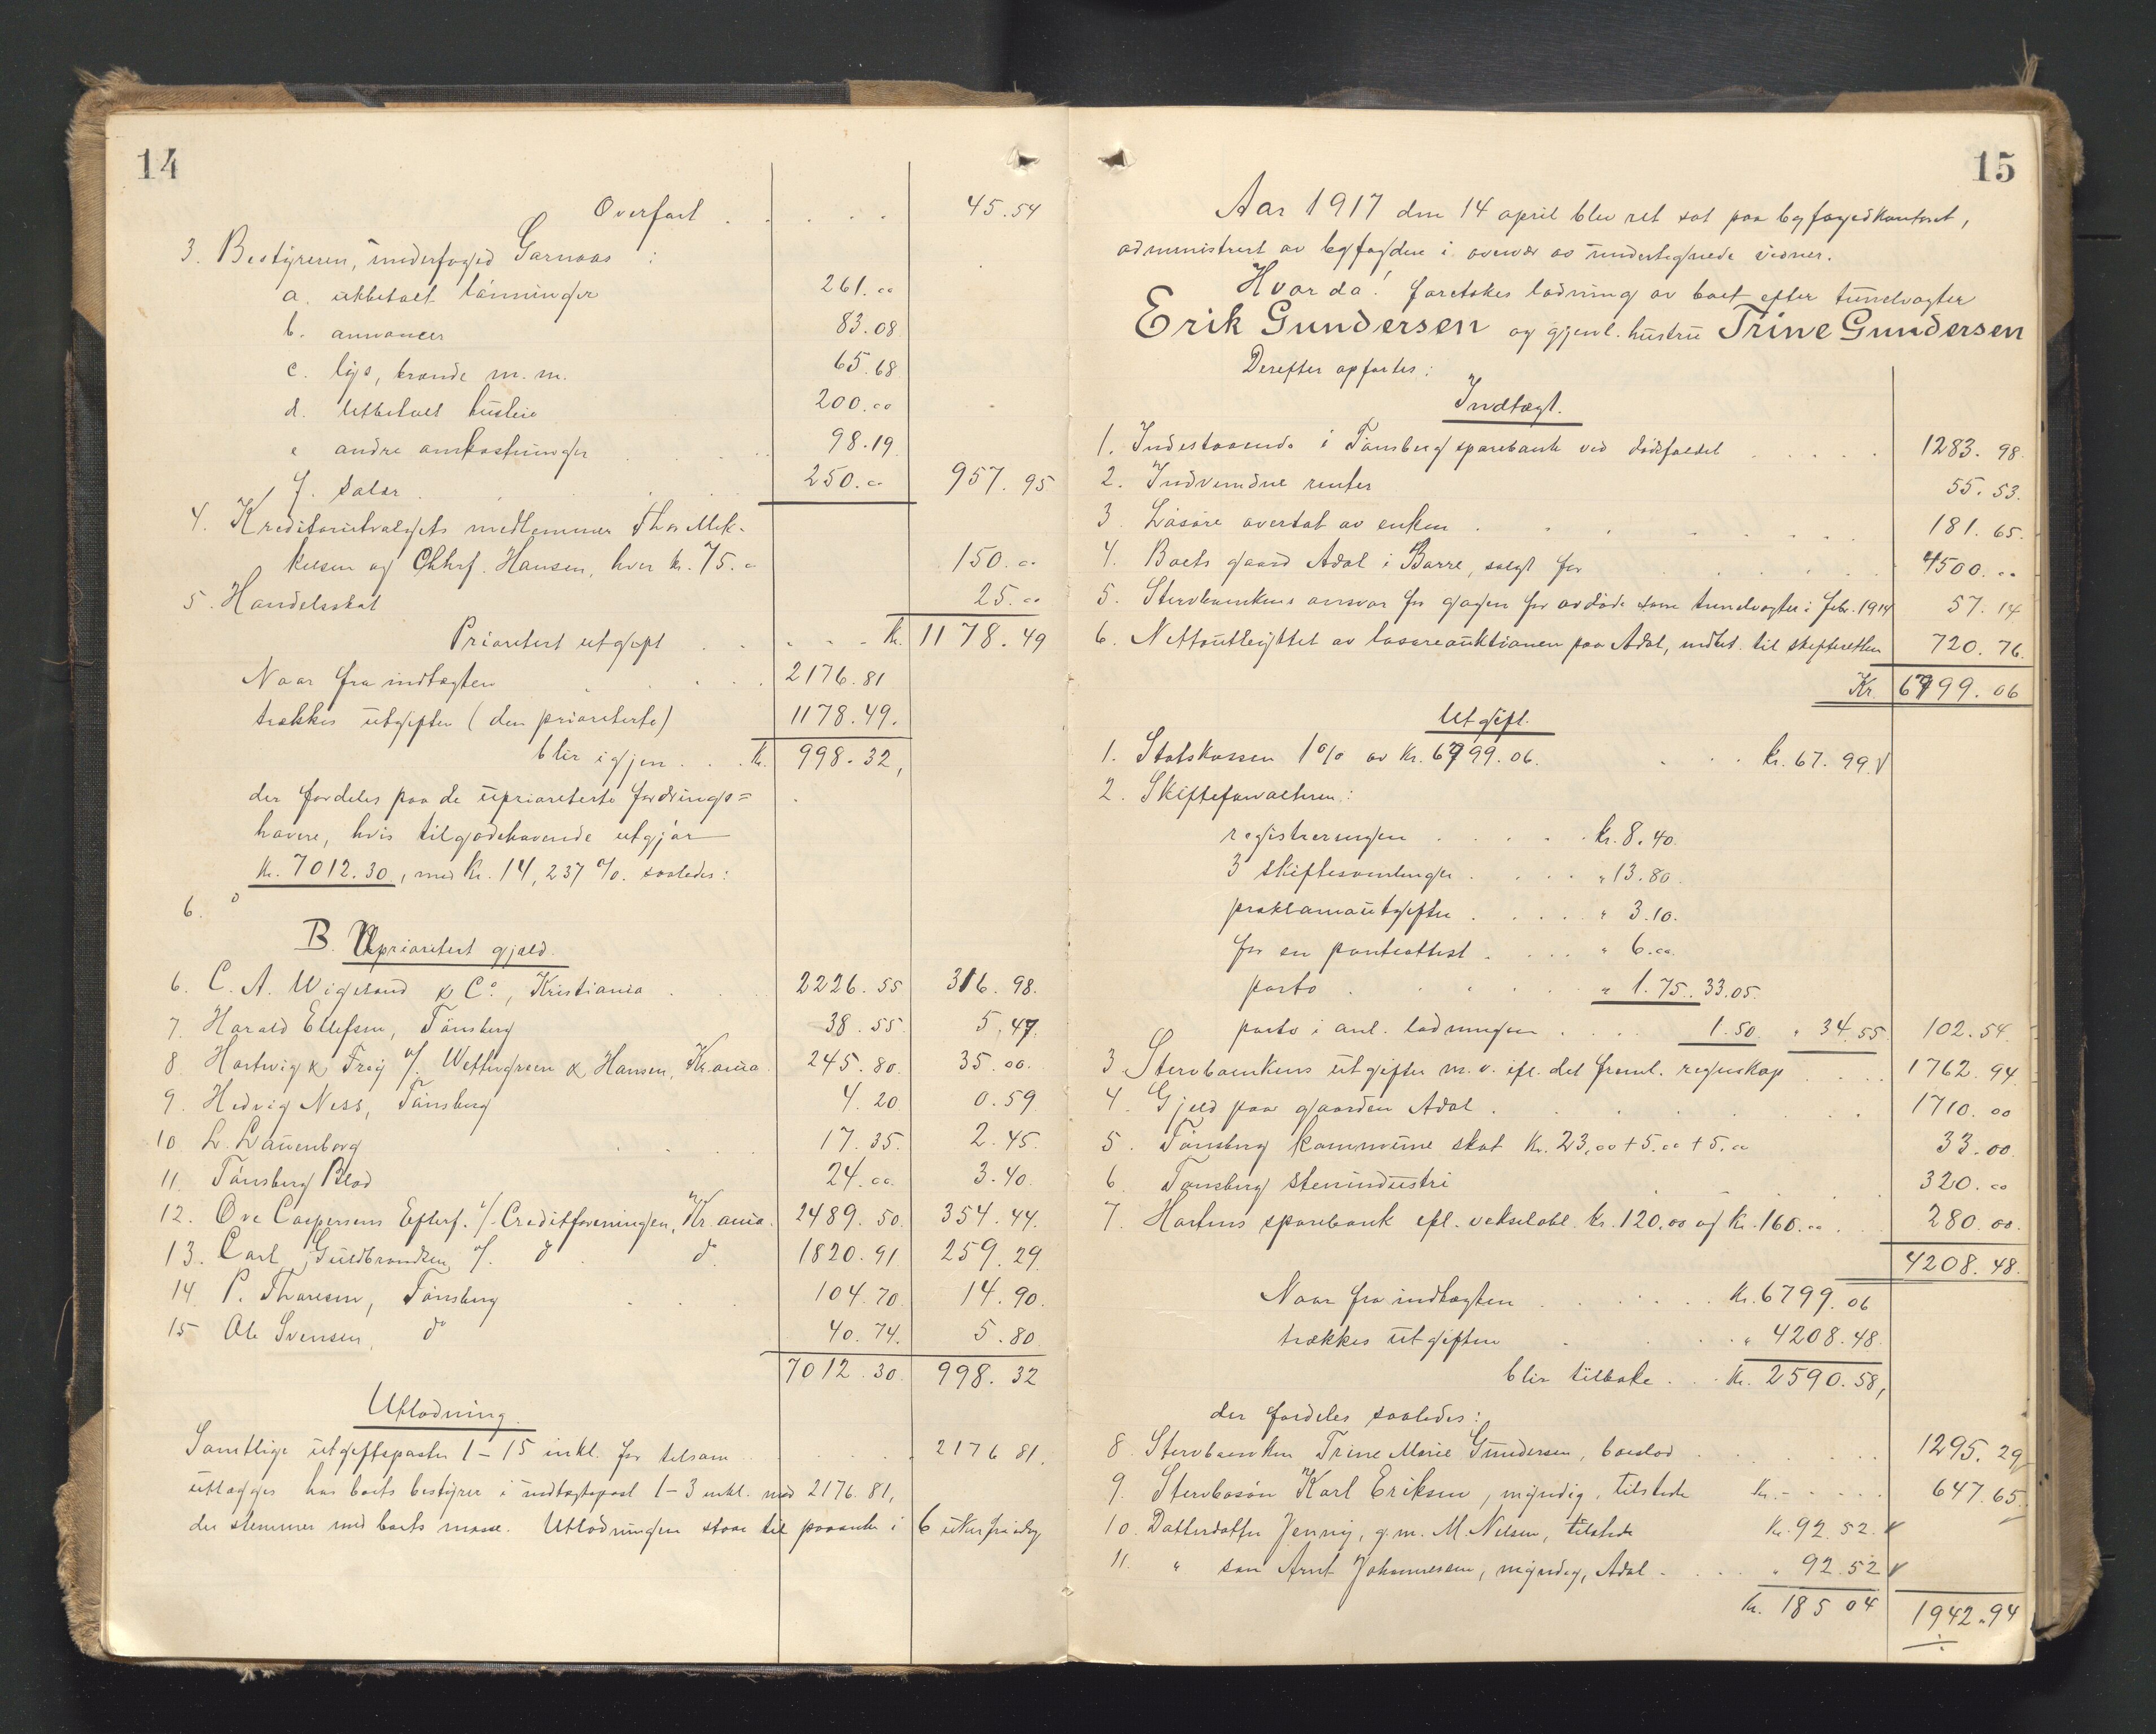 14
Overført . . . . . 45.54
3. Bestyreren, underfoged Garnaas :
a. utbetalt lönninger 261.00
b. annoncer 83.08
c. lys, brænde m. m. 65.68
d. Utbetalt husleie 200.00
e andre omkostninger . . . . 98.19
f. Salær . . . . 250.00 957.95
4. Kreditorutvalgets medlemmer Thor Mik-
kelsen og Chhrf. Hansen, hver kr. 75.00 150.00
5. Handelsskat 25.00
Prioritert utgift . . . . . Kr. 1178.49
Naar fra indtægten . . . 2176.81
trækkes utgiften (den prioriterte) 1178.49.
blir igjen . . . Kr. 998.32,
der fordeles paa de uprioriterte fordrings=
havere, hvis tilgodehavende utgjör
Kr. 7012.30, med Kr. 14,237 %. saaledes:
6.
B. Uprioritert gjæld.
6. C. A. Wigelsund & Co., Kristiania . . 2226.55 316.98.
7. Harald Ellefsen, Tönsberg 38.55 5.47.
8. Hartwig & Frey v/. Wettergreen & Hansen, Kr.ania 245.80. 35.00.
9. Hedvig Ness, Tönsberg 4.20 0.59
10 L. Lauenborg . . . 17.35. 2.45.
11. Tönsberg Blad 24.00. 3.40.
12. Ove Caspersens Efterf. v/. Creditforeningen, Kr.ania. 2489.50. 354.44.
13. Carl Guldbrandsen v/. do do 1820.91 259.29.
14 P. Thoresen, Tönsberg . . . 104.70 14.90.
15 Ole Svensen, do 40.74. 5.80
7012.30. 998.32
Utlodning.
Samtlige utgiftsposter 1-15 inkl. for tilsam . . . . 2176 81.
utlægges hos boets bestyrer i indtægtspost 1-3 inkl. med 2176.81,
der stemmer med boets masse. Utlodningen staar til paaanke i 6 uker fra idag
15
Aar 1917 den 14 april blev ret sat paa byfogedkontoret,
administrert av byfogden i overvær av undertegnede vidner.
Hvor da! foretokes lodning av boet efter tunelvagter
Erik Gundersen og gjenl. hustru Trine Gundersen
Derefter opførtes :
Indtægt.
1. Indestaaende i Tönsberg sparebank ved dödsfaldet . . . . . 1283.98.
2. Indvundne renter 55.53.
3. Lösöre overtat av enken . . . . . . 181.65.
4. Boets gaard Adal i Borre, solgt for . . . . . 4500.00
5. Stervboenkens ansvar for gagen for avdöde som tunelvagter i febr. 1914 57.14
6. Nettoutbyttet av lösöreauktionen paa Adal, indbet. til skifteretten 720.76.
Kr. 6799.06
Utgift.
1. Statskassen 1% av Kr. 6799.06. . . . kr. 67.99.
2. Skifteforvalteren:
registreringen . . . . . kr. 8.40.
3 skiftesamlinger . . . . " 13.80.
proklamautgifter . . . . " 3.10.
for en panteattest . . . . " 6.00.
porto . . . . . " 1.75. 33.05.
porto i anl. lodningen . . . . 1.50. " 34.55 102.54.
3. Stervboenkens utgifter m. v. ifl. det freml. regnskap . . . . 1762.94.
4. Gjeld paa gaarden Adal . . . . . . 1710.00
5. Tönsberg kommune skat Kr. 23.00+5.00+5.00 33.00.
6. Tönsberg stenindustri . . . . 320.00
7. Hortens sparebank ifl. vekselobl. Kr. 120.00 og Kr. 160.00 . . 280.00.
4208.48.
Naar fra indtægten . . . . . . Kr. 6799.06
trækkes utgiften . . . " 4208.48.
blir tilbake . . . Kr. 2590.58,
der fordeles saaledes:
8. Stervboenken Trine Marie Gundersen, boeslod . . . . . 1295.29
9. Stervbosön Karl Eriksen, myndig, tilstede Kr. - . . . . 647.65
10. Datterdatter Jenny, g. m. M. Nilsen, tilstede Kr. 92.52.
11. " sön Arnt Johannessen, myndig, Adal . . . . " 92.52
Kr. 185 04 1942.94